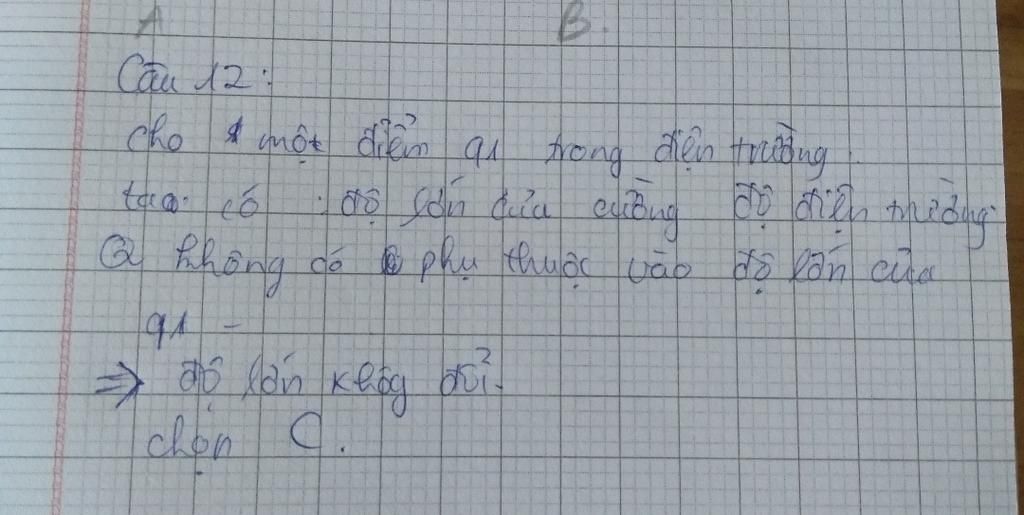 A B.
Câu 12:
cho một điểm q1 trong điện trường.
ta có: độ lớn của cường độ điện trường
Q không có phụ thuộc vào độ lớn của
q1 -
⇒ độ lớn không đổi.
chọn C.